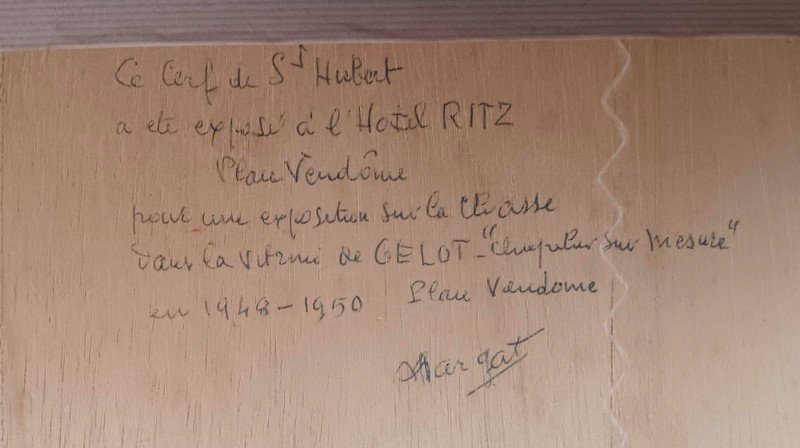 Ce Cerf de St Hubert
a ete exposé à l'Hotel RITZ
Place Vendôme
pour une exposition sur la Chasse
dans la vitrine de GELOT - "Chapelier sur Mesure"
en 1948 - 1950 Place Vendome
Margat